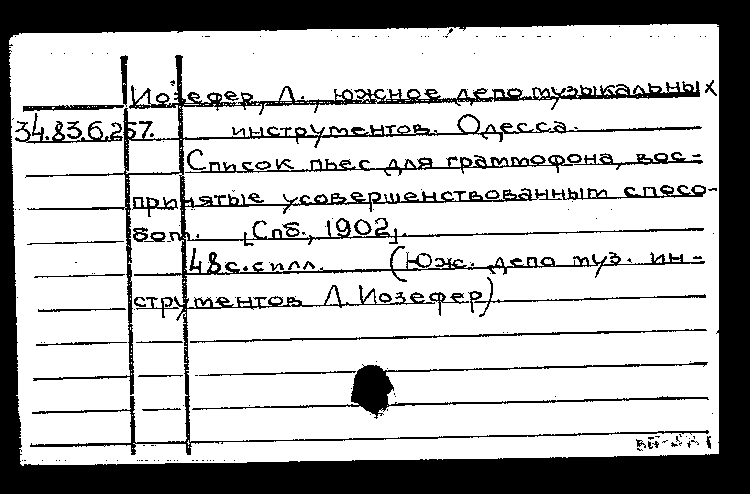 Иозефер, Л., южное депо музыкальных
34.83.6.257. инструментов. Одесса.
Список пьес для граммофона, вос-
принятые усовершенствованным спосо-
бом. [Спб., 1902].
48с.с илл. (Юж. депо муз. ин-
струментов Л. Иозефер).